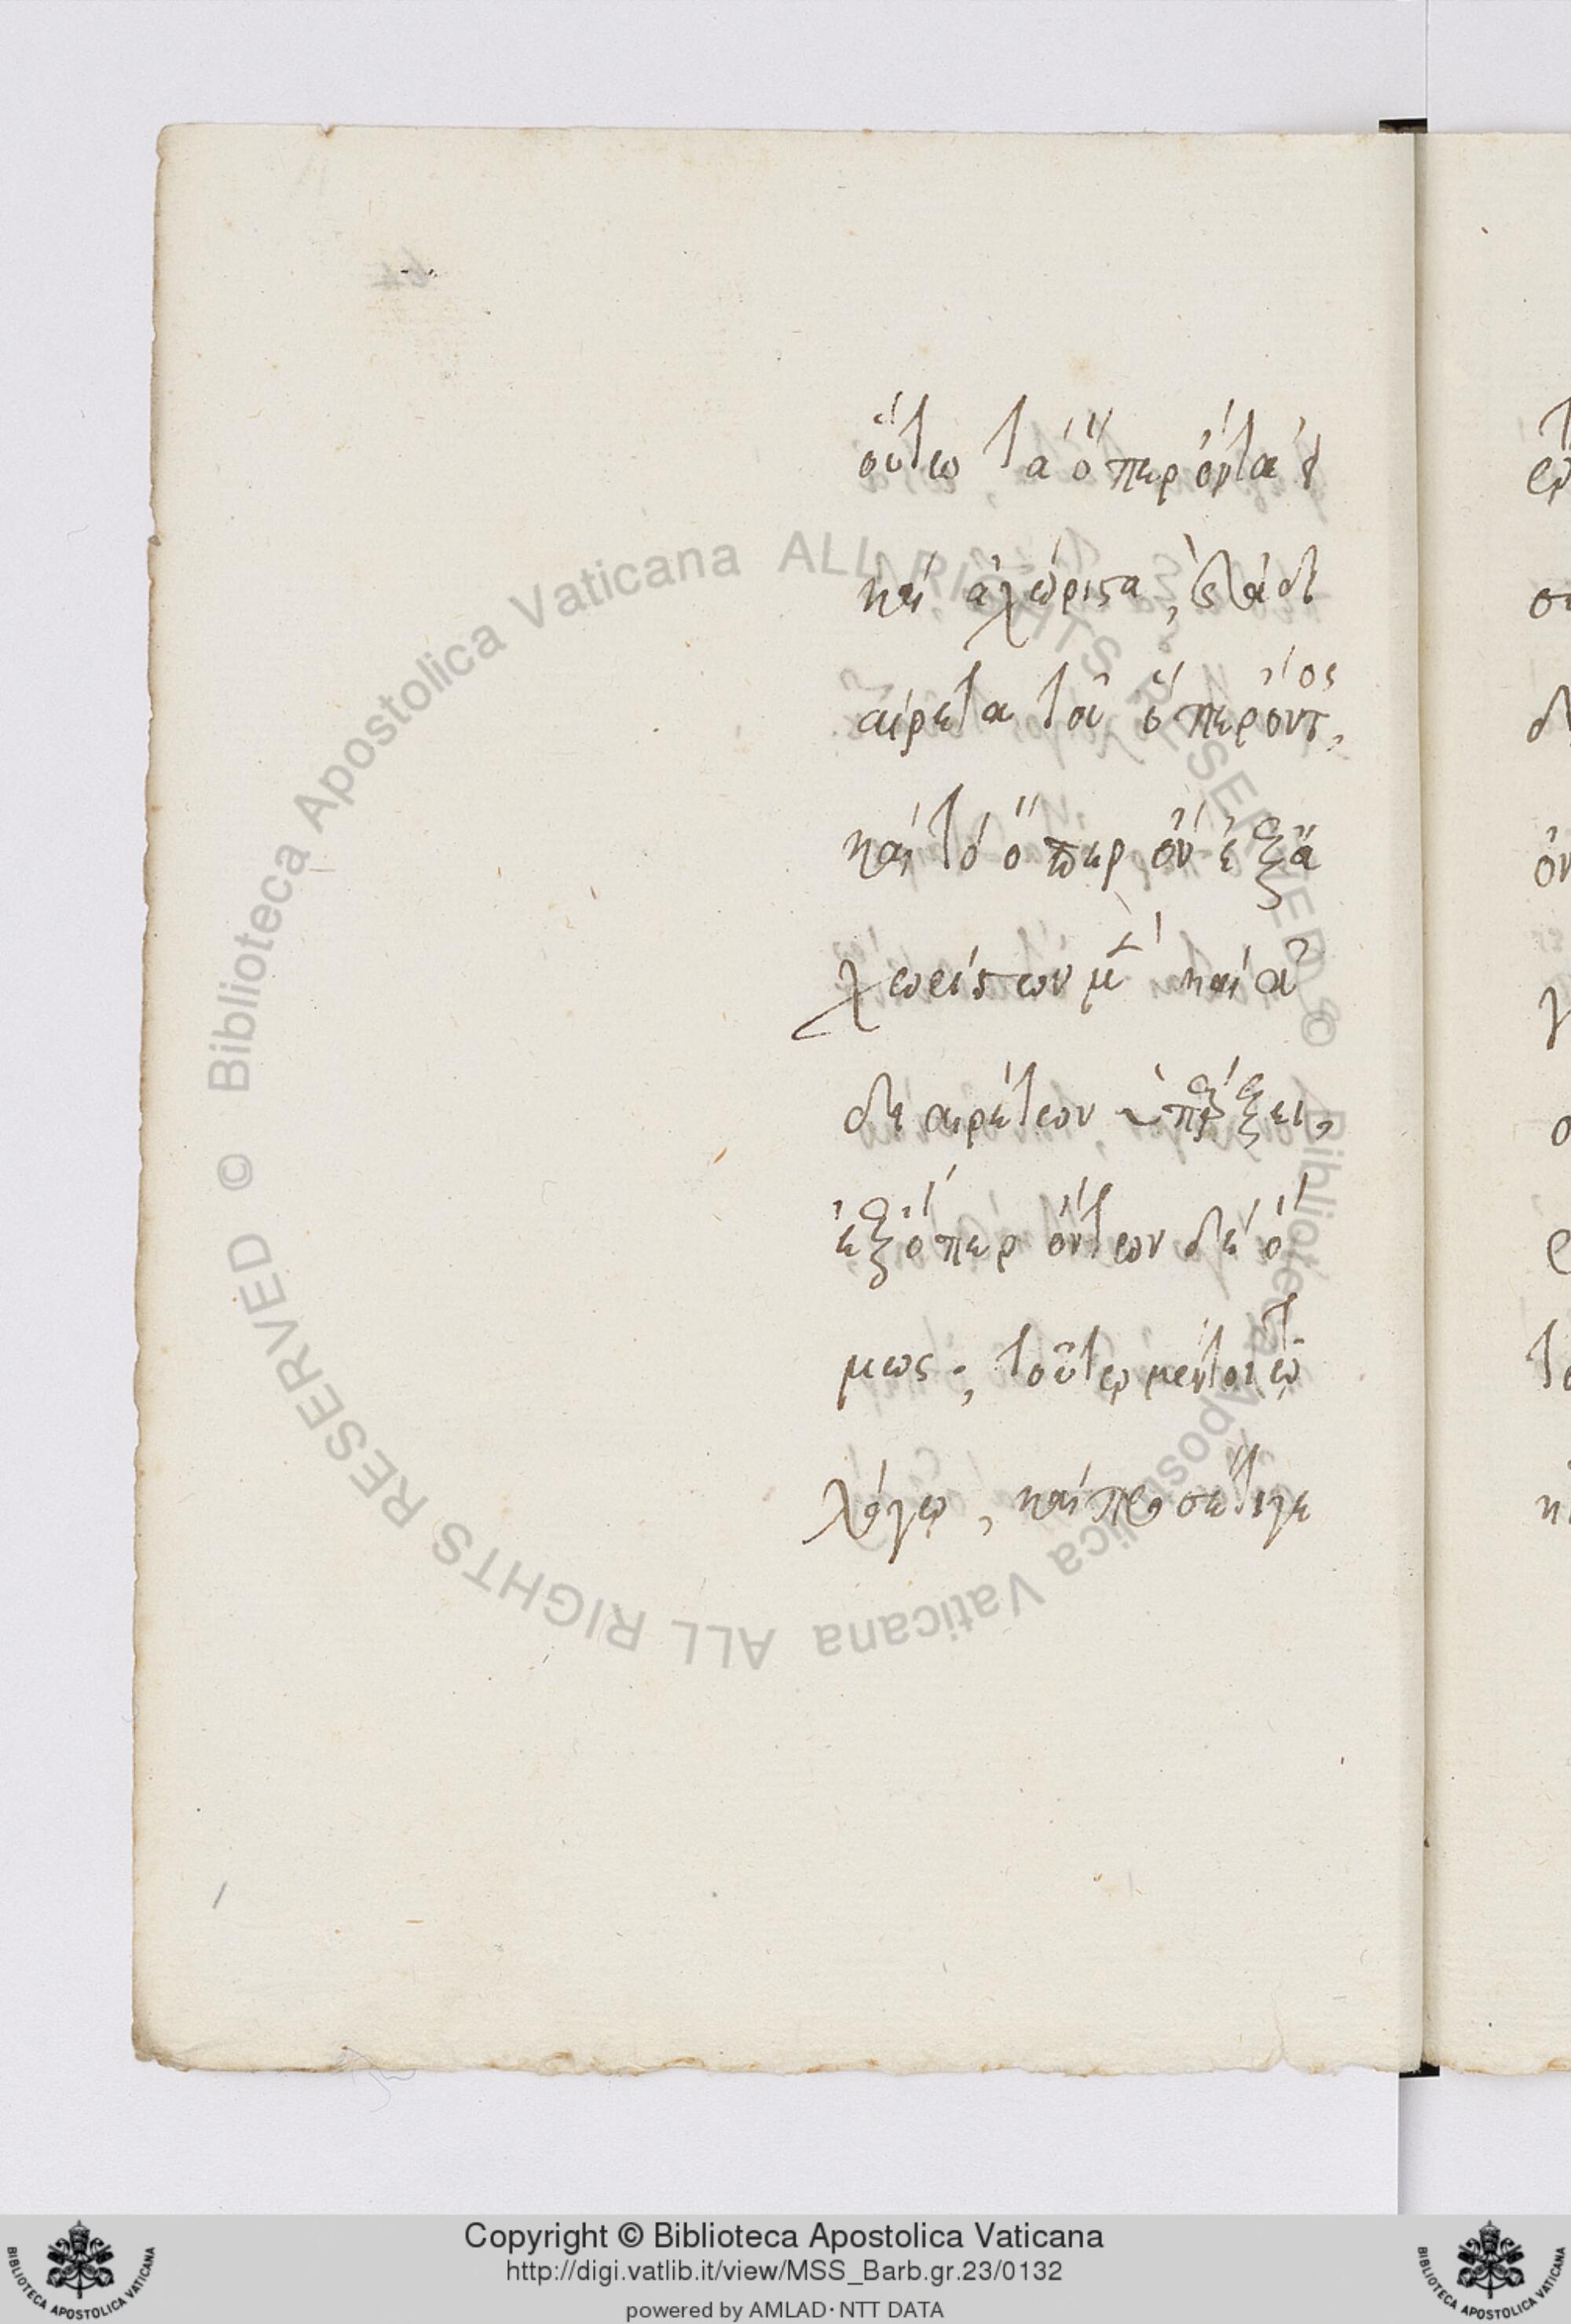 οὕτω τὰ ὅπερ ὄντα
καὶ ἀχώριστα, καὶ ἀδι
αίρετα τοῦ ὅπερ ὄντος,
καὶ τὸ ὅπερ ὂν ἐξ ἀ
χωρίστων μὲν καὶ ἀ
διαιρέτων ὑπάρξει,
ἐξ ὅπερ ὄντων δὲ ὅ
μως; τούτῳ μέντοι τῷ
λόγῳ, καὶ προσέτι γε
Copyright © Biblioteca Apostolica Vaticana
http://digi.vatlib.it/view/MSS_Barb.gr.23/0132
powered by AMLAD·NTT DATA
BIBLIOTECA APOSTOLICA VATICANA
BIBLIOTECA APOSTOLICA VATICANA
© Biblioteca Apostolica Vaticana ALL RIGHTS RESERVED © Biblioteca Apostolica Vaticana ALL RIGHTS RESERVED